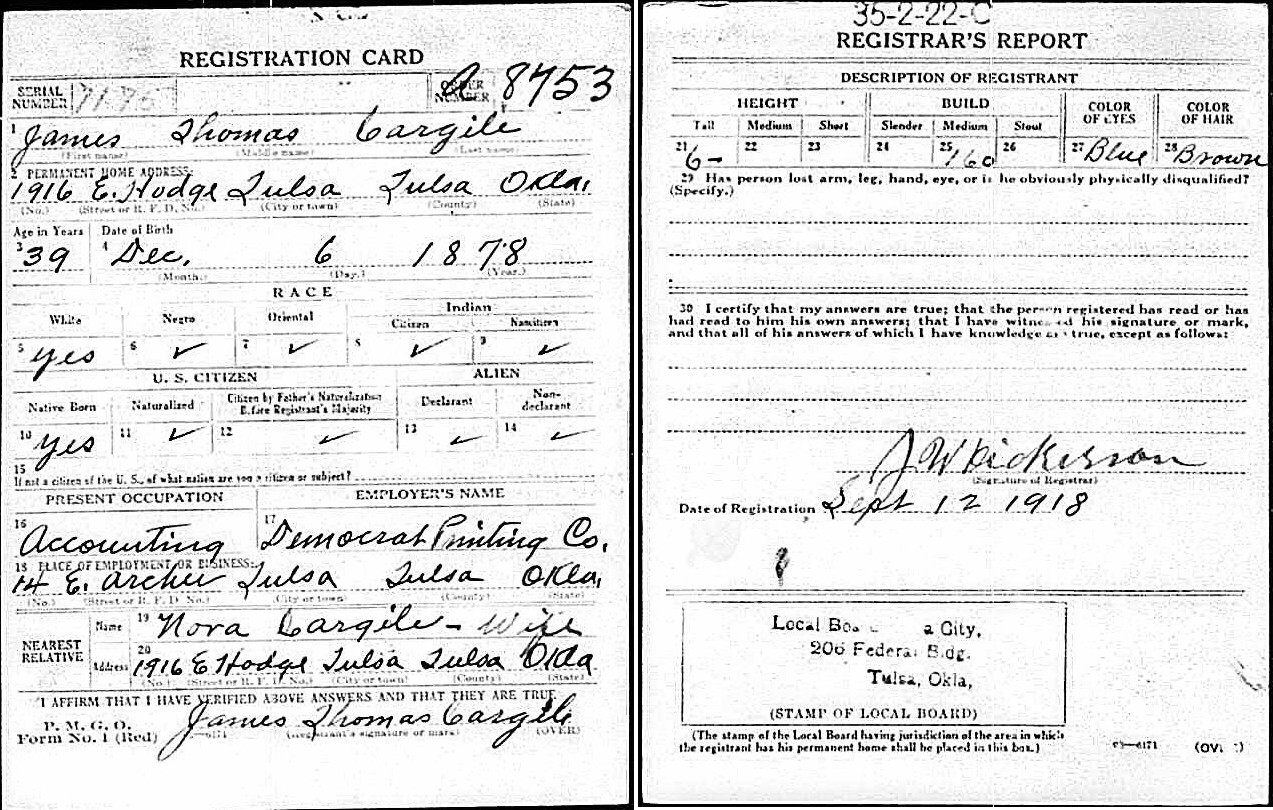 REGISTRATION CARD
SERIAL NUMBER
ORDER NUMBER A 8753
1 James Thomas Cargile
(First name) (Middle name) (Last name)
2 PERMANENT HOME ADDRESS:
1916 E. Hodge Tulsa Tulsa Okla.
(No.) (Street or R. F. D. No.) (City or town) (County) (State)
Age in Years Date of Birth
3 39 4 Dec. 6 1878
(Month.) (Day.) (Year.)
RACE
White Negro Oriental Indian
Citizen Noncitizen
5 yes 6 ✓ 7 ✓ 8 ✓ 9 ✓
U. S. CITIZEN ALIEN
Native Born Naturalized Citizen by Father's Naturalization Before Registrant's Majority Declarant Non-declarant
10 yes 11 ✓ 12 ✓ 13 ✓ 14 ✓
15
If not a citizen of the U. S., of what nation are you a citizen or subject?
PRESENT OCCUPATION EMPLOYER'S NAME
16 Accounting 17 Democrat Printing Co.
18 PLACE OF EMPLOYMENT OR BUSINESS:
14 E. Archer Tulsa Tulsa Okla.
(No.) (Street or R. F. D. No.) (City or town) (County) (State)
NEAREST RELATIVE
Name 19 Nora Cargile - Wife
Address 20 1916 E Hodge Tulsa Tulsa Okla
(No.) (Street or R. F. D. No.) (City or town) (County) (State)
I AFFIRM THAT I HAVE VERIFIED ABOVE ANSWERS AND THAT THEY ARE TRUE
P. M. G. O.
Form No. 1 (Red) James Thomas Cargile
(Registrant's signature or mark) (OVER)
35-2-22-C
REGISTRAR'S REPORT
DESCRIPTION OF REGISTRANT
HEIGHT BUILD COLOR OF EYES COLOR OF HAIR
Tall Medium Short Slender Medium Stout
21 6- 22 23 24 25 160 26 27 Blue 28 Brown
29 Has person lost arm, leg, hand, eye, or is he obviously physically disqualified?
(Specify.)
30 I certify that my answers are true; that the person registered has read or has
had read to him his own answers; that I have witnessed his signature or mark,
and that all of his answers of which I have knowledge are true, except as follows:
J W Dickerson
(Signature of Registrar)
Date of Registration Sept 12 1918
Local Boa a City,
206 Federal Bldg.
Tulsa, Okla,
(STAMP OF LOCAL BOARD)
(The stamp of the Local Board having jurisdiction of the area in which
the registrant has his permanent home shall be placed in this box.)
03—6171 (OVER)